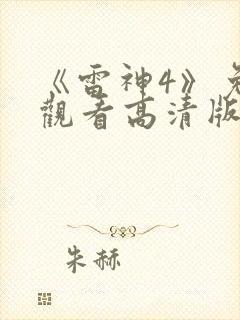 《雷神4》免
觀看高清版
朱赫